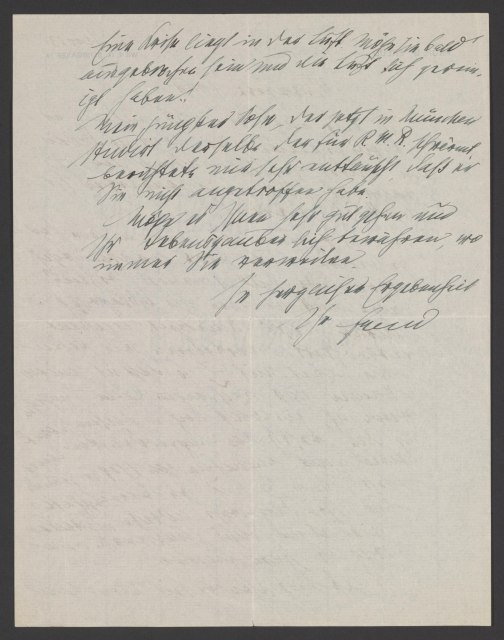 Eine Krise liegt in der Luft möge sie bald
ausgebrochen sein und die Luft sich gerei-
igt haben!
Mein jüngster Sohn, der jetzt in München
studiert derselbe der für R. M. R. schwärmt
berichtete mir sehr enttäuscht daß er
Sie nicht angetroffen habe.
Möge es Ihnen sehr gut gehen und
Ihr Lebenszauber sich bewähren, wo
immer Sie verweilen
In herzlicher Ergebenheit
Ihr